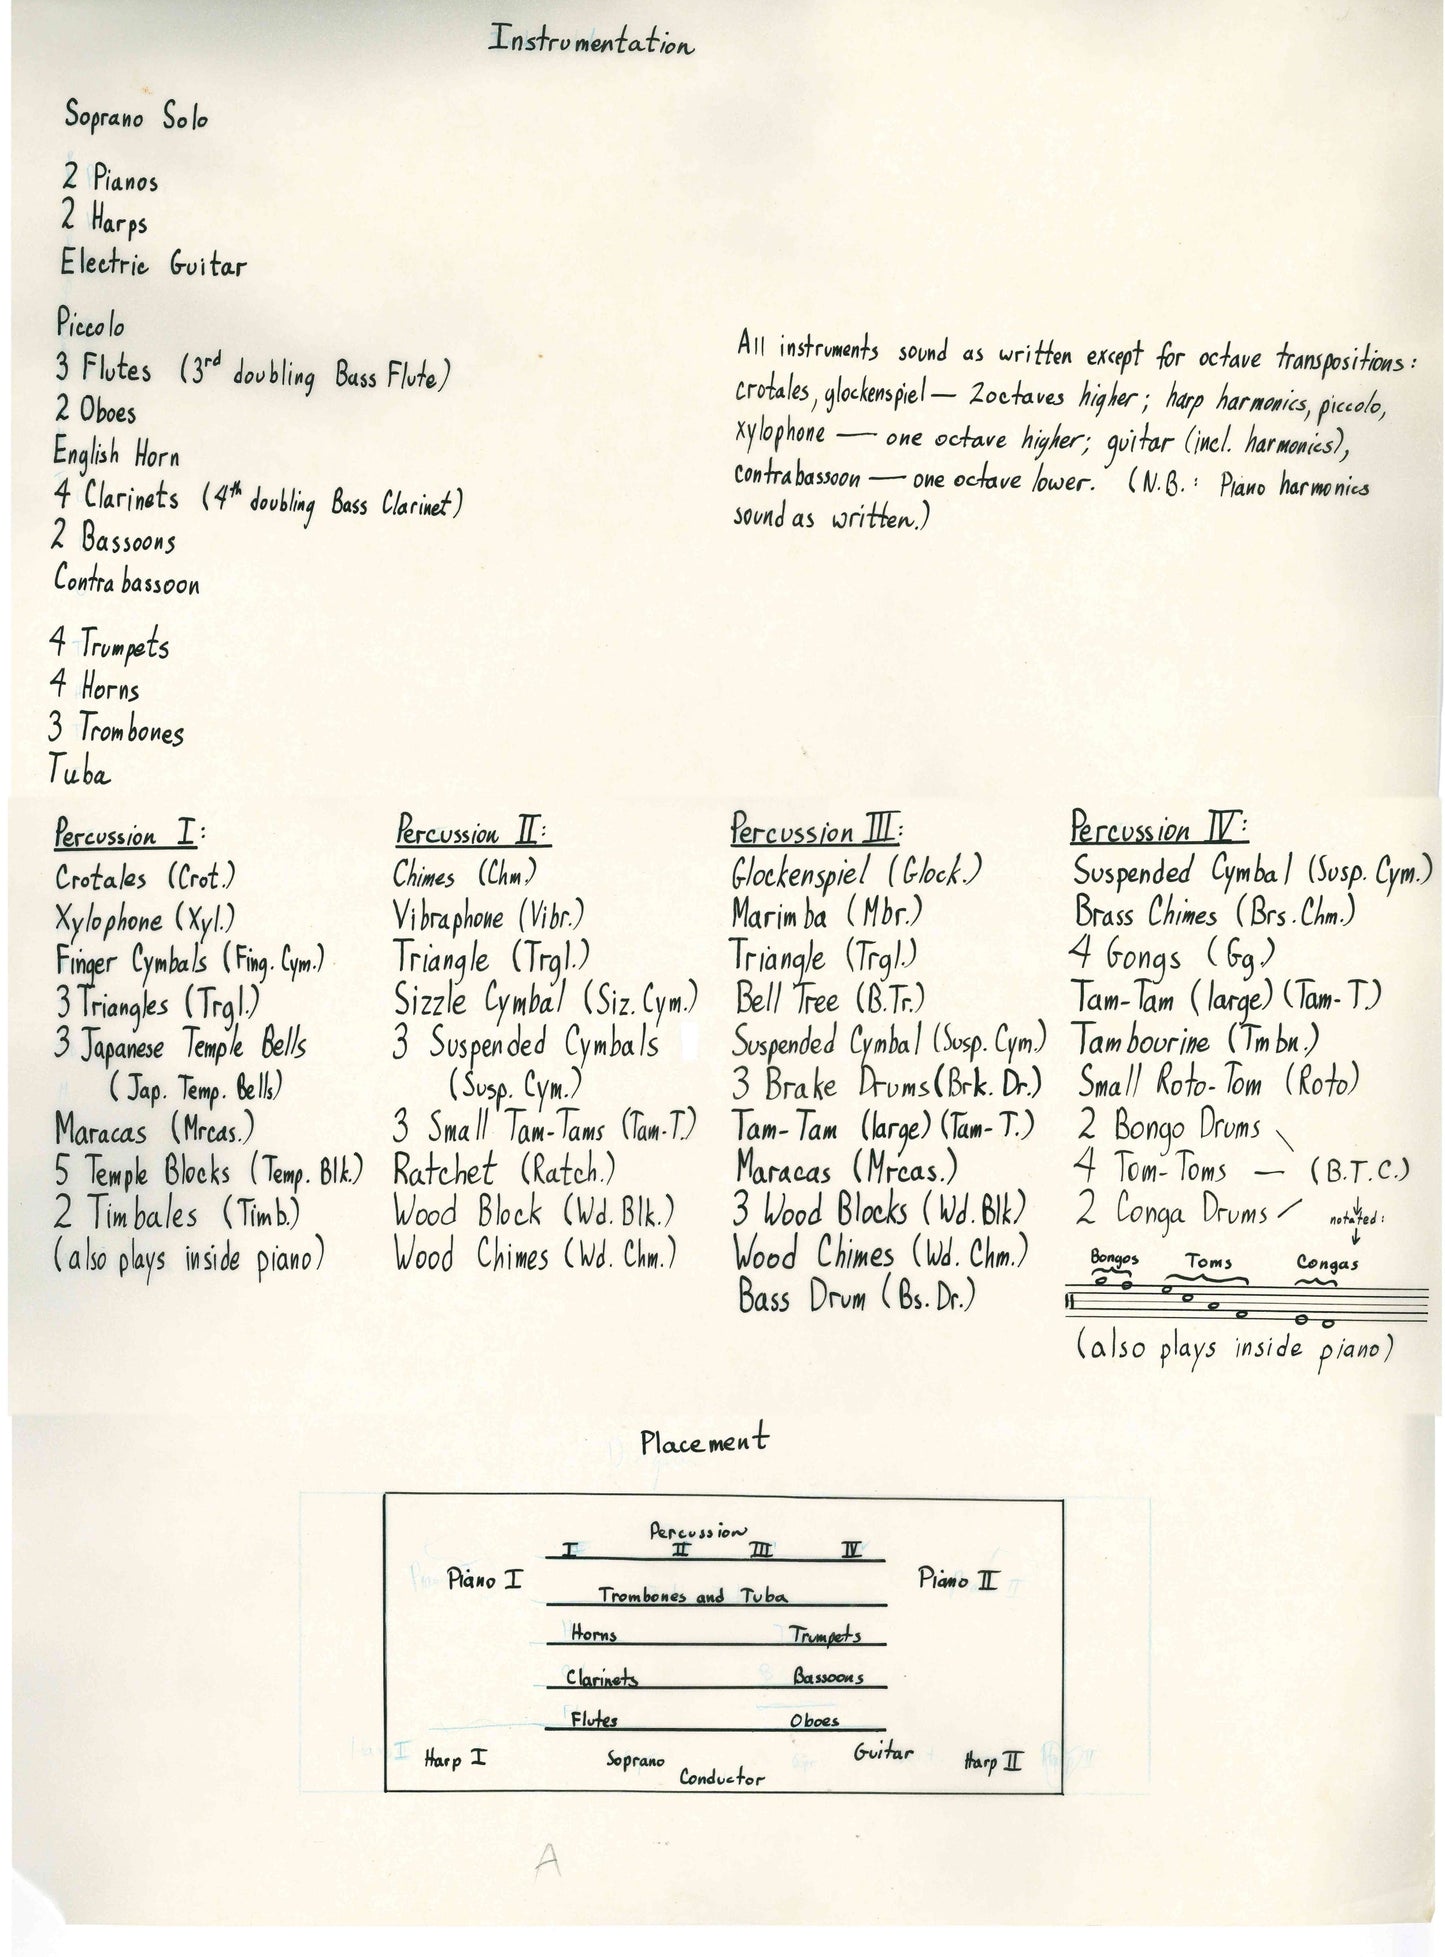 Instrumentation
Soprano Solo
2 Pianos
2 Harps
Electric Guitar
Piccolo
3 Flutes (3rd doubling Bass Flute)
2 Oboes
English Horn
4 Clarinets (4th doubling Bass Clarinet)
2 Bassoons
Contrabassoon
4 Trumpets
4 Horns
3 Trombones
Tuba
All instruments sound as written except for octave transpositions:
crotales, glockenspiel — 2 octaves higher; harp harmonics, piccolo,
xylophone — one octave higher; guitar (incl. harmonics),
contrabassoon — one octave lower. (N.B.: Piano harmonics
sound as written.)
Percussion I:
Crotales (Crot.)
Xylophone (Xyl.)
Finger Cymbals (Fing. Cym.)
3 Triangles (Trgl.)
3 Japanese Temple Bells
(Jap. Temp. Bells)
Maracas (Mrcas.)
5 Temple Blocks (Temp. Blk.)
2 Timbales (Timb.)
(also plays inside piano)
Percussion II:
Chimes (Chm.)
Vibraphone (Vibr.)
Triangle (Trgl.)
Sizzle Cymbal (Siz. Cym.)
3 Suspended Cymbals
(Susp. Cym.)
3 Small Tam-Tams (Tam-T.)
Ratchet (Ratch.)
Wood Block (Wd. Blk.)
Wood Chimes (Wd. Chm.)
Percussion III:
Glockenspiel (Glock.)
Marimba (Mbr.)
Triangle (Trgl.)
Bell Tree (B.Tr.)
Suspended Cymbal (Susp. Cym.)
3 Brake Drums (Brk. Dr.)
Tam-Tam (large) (Tam-T.)
Maracas (Mrcas.)
3 Wood Blocks (Wd. Blk)
Wood Chimes (Wd. Chm.)
Bass Drum (Bs. Dr.)
Percussion IV:
Suspended Cymbal (Susp. Cym.)
Brass Chimes (Brs. Chm.)
4 Gongs (Gg.)
Tam-Tam (large) (Tam-T.)
Tambourine (Tmbn.)
Small Roto-Tom (Roto)
2 Bongo Drums
4 Tom-Toms — (B.T.C.)
2 Conga Drums
notated:
Bongos Toms Congas
(also plays inside piano)
Placement
Percussion
I II III IV
Piano I Piano II
Trombones and Tuba
Horns Trumpets
Clarinets Bassoons
Flutes Oboes
Harp I Soprano Guitar Harp II
Conductor
A